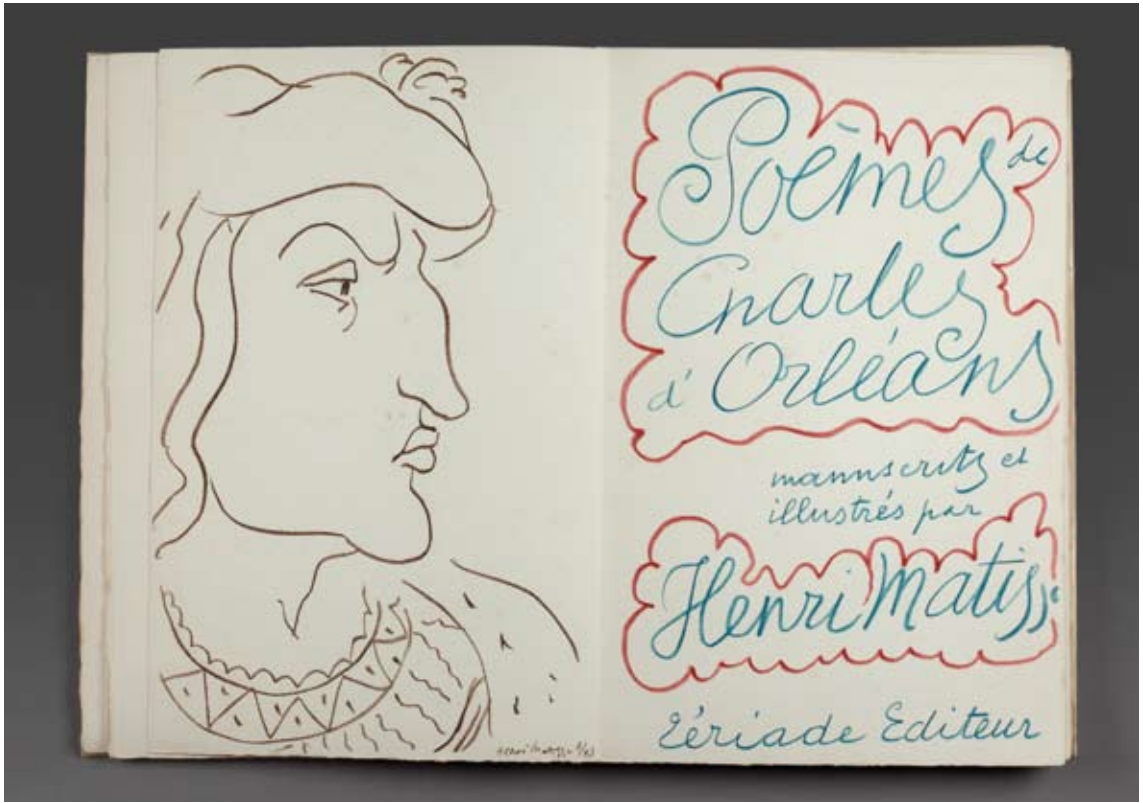 Poëmes de
Charles
d'Orléans
manuscrits et
illustrés par
Henri Matisse
Tériade Editeur